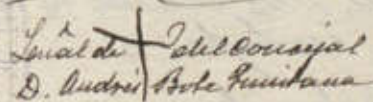 Señal de + del Concejal
D. Andrés Bote Quintana